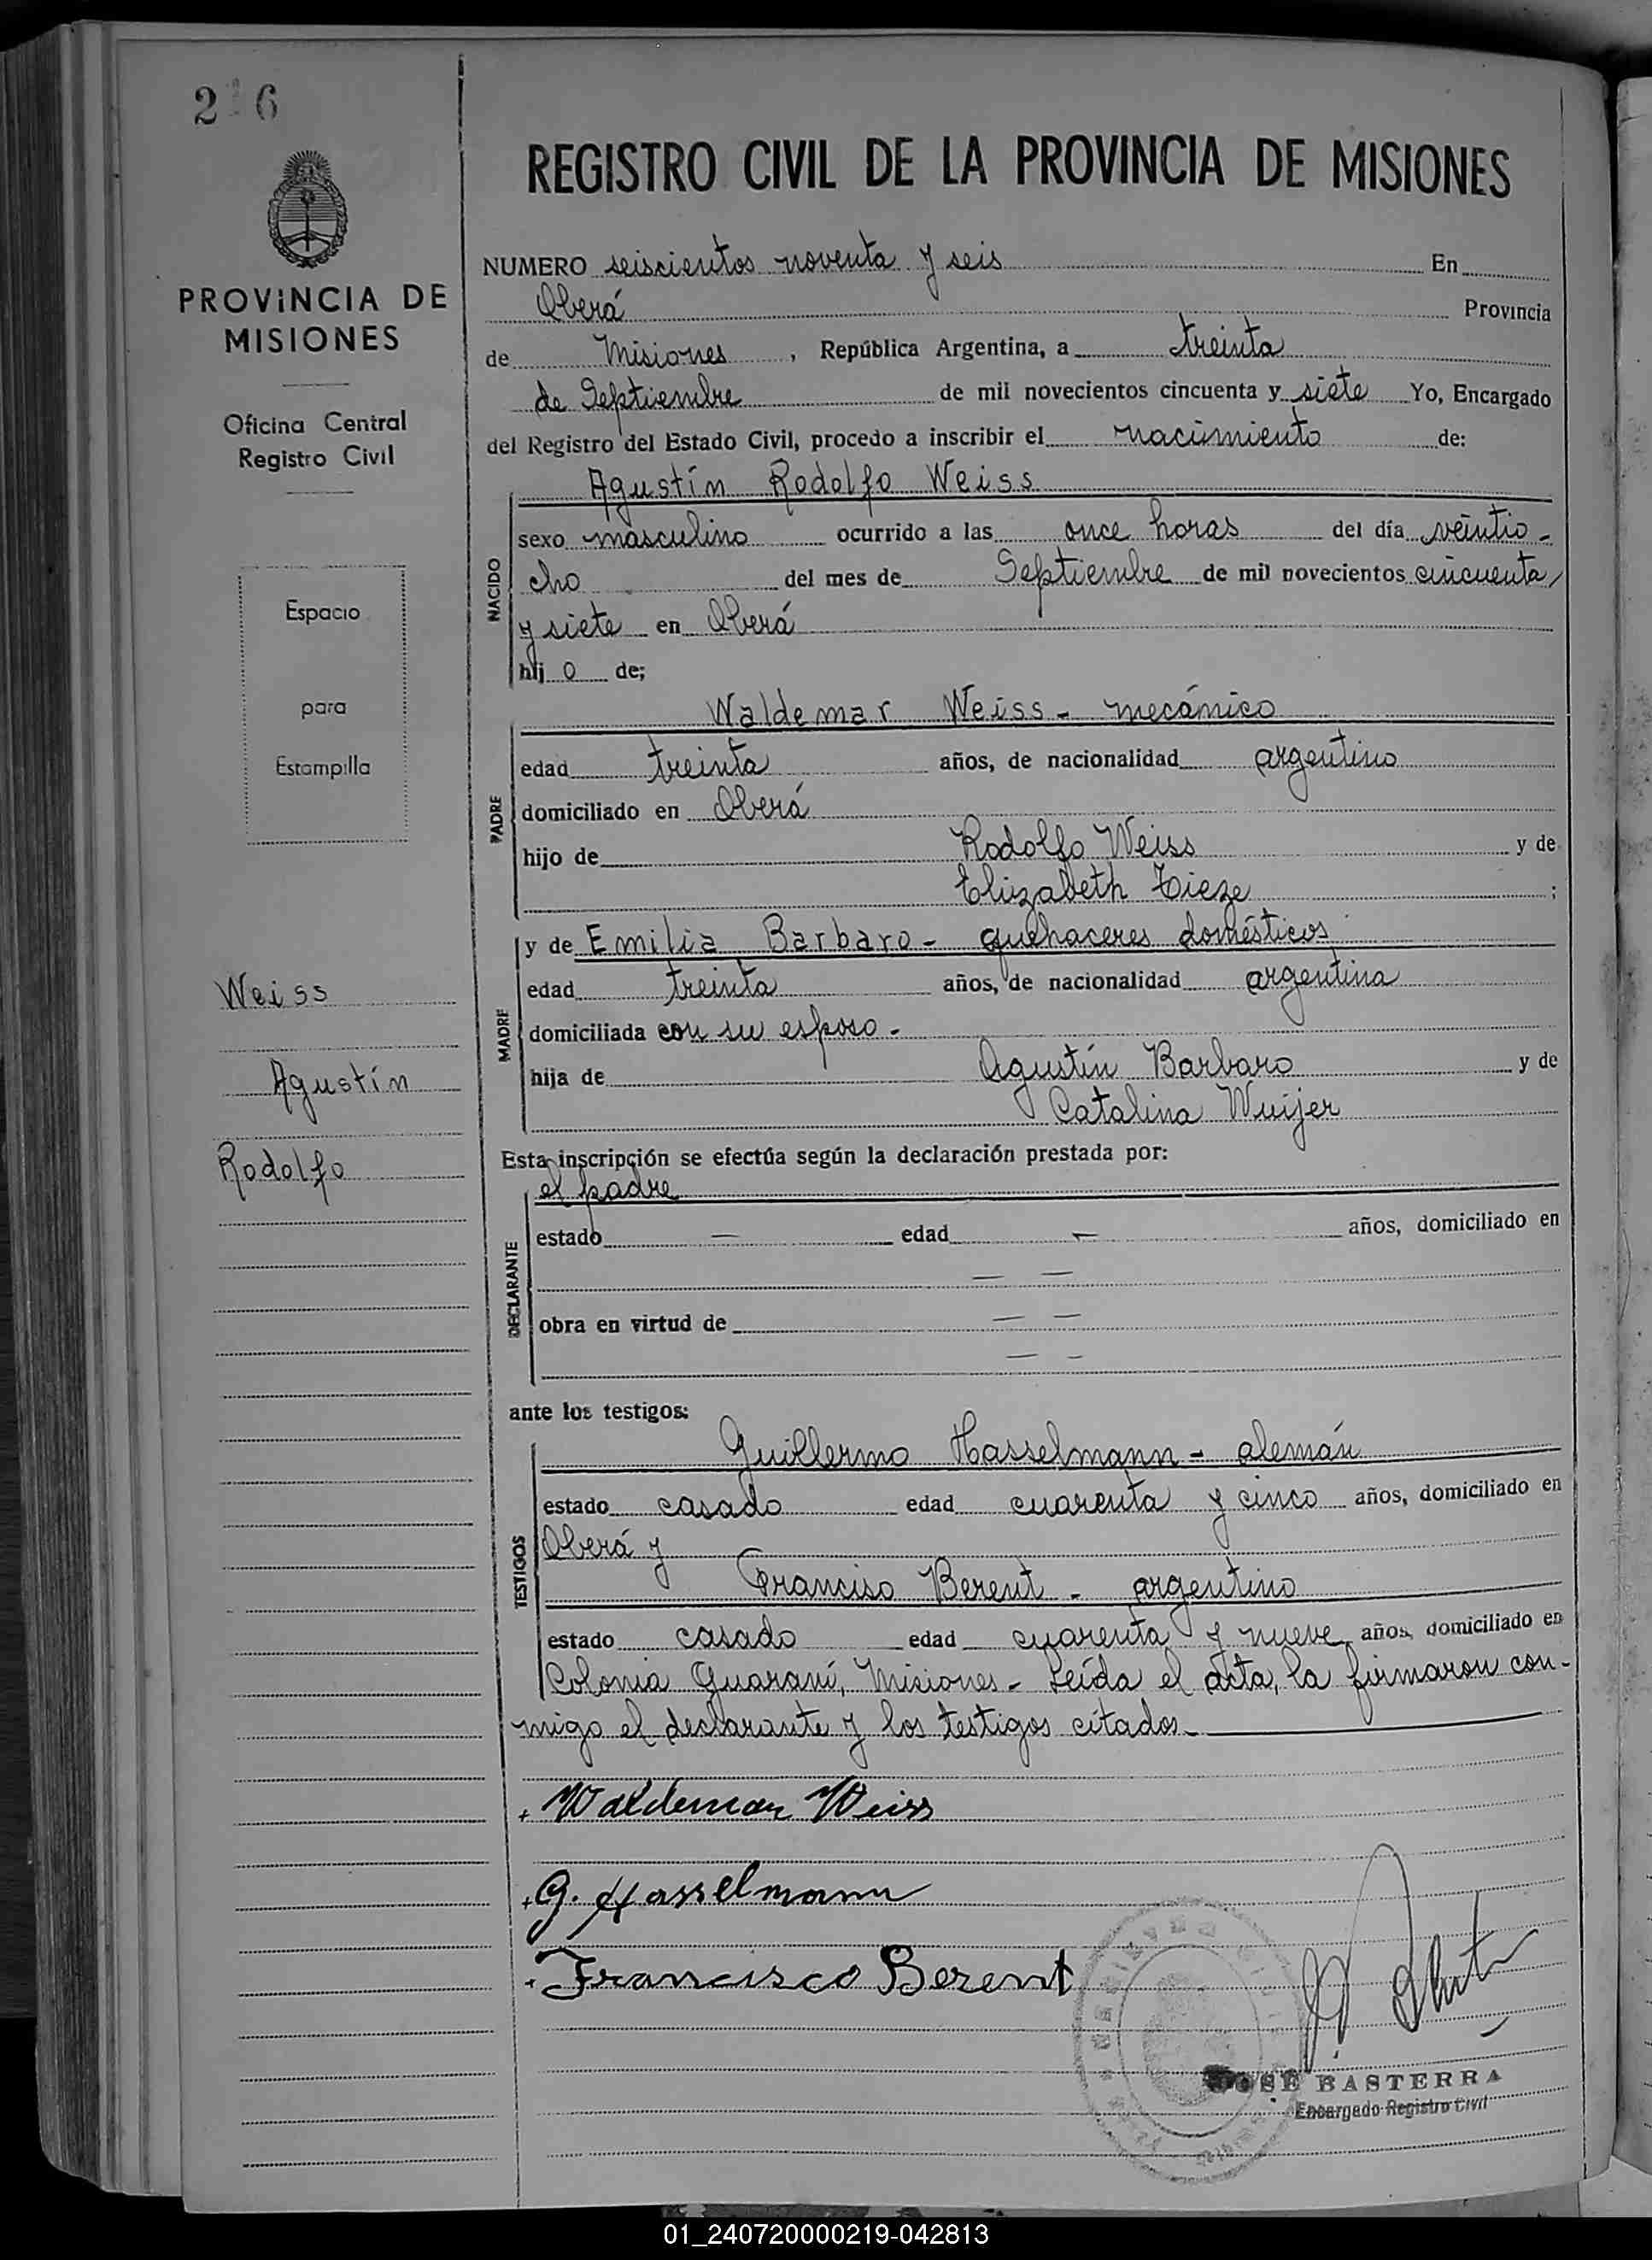 2 6
REGISTRO CIVIL DE LA PROVINCIA DE MISIONES
PROVINCIA DE
MISIONES
Oficina Central
Registro Civil
Espacio
para
Estampilla
Weiss
Agustín
Rodolfo
NUMERO seiscientos noventa y seis En
Oberá Provincia
de Misiones, República Argentina, a treinta
de Septiembre de mil novecientos cincuenta y siete Yo, Encargado
del Registro del Estado Civil, procedo a inscribir el nacimiento de:
Agustín Rodolfo Weiss
NACIDO
sexo masculino ocurrido a las once horas del día veintio-
cho del mes de Septiembre de mil novecientos cincuenta
y siete en Oberá
hij o de;
Waldemar Weiss - mecánico
PADRE
edad treinta años, de nacionalidad argentino
domiciliado en Oberá
hijo de Rodolfo Weiss y de
Elizabeth Tieze;
MADRE
y de Emilia Barbaro - quehaceres domésticos
edad treinta años, de nacionalidad argentina
domiciliada con su esposo -
hija de Agustín Barbaro y de
Catalina Wuijer
Esta inscripción se efectúa según la declaración prestada por:
el padre
DECLARANTE
estado — edad — años, domiciliado en
— —
obra en virtud de — —
— —
ante los testigos:
Guillermo Hasselmann - alemán
TESTIGOS
estado casado edad cuarenta y cinco años, domiciliado en
Oberá y
Franciso Berent - argentino
estado casado edad cuarenta y nueve años, domiciliado en
Colonia Guaraní, Misiones - Leída el acta, la firmaron con-
migo el declarante y los testigos citados -
+ Waldemar Weiss
+ G. Hasselmann
+ Francisco Berent
JOSE BASTERRA
Encargado Registro Civil
01_240720000219-042813